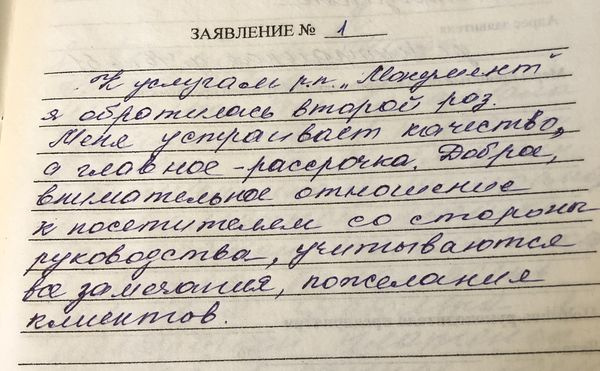 ЗАЯВЛЕНИЕ № 1
К услугам р.п. „Монумент"
я обратилась второй раз.
Меня устраивает качество,
а главное - рассрочка. Доброе,
внимательное отношение
к посетителем со стороны
руководства, учитываются
все замечания, пожелания
клиентов.